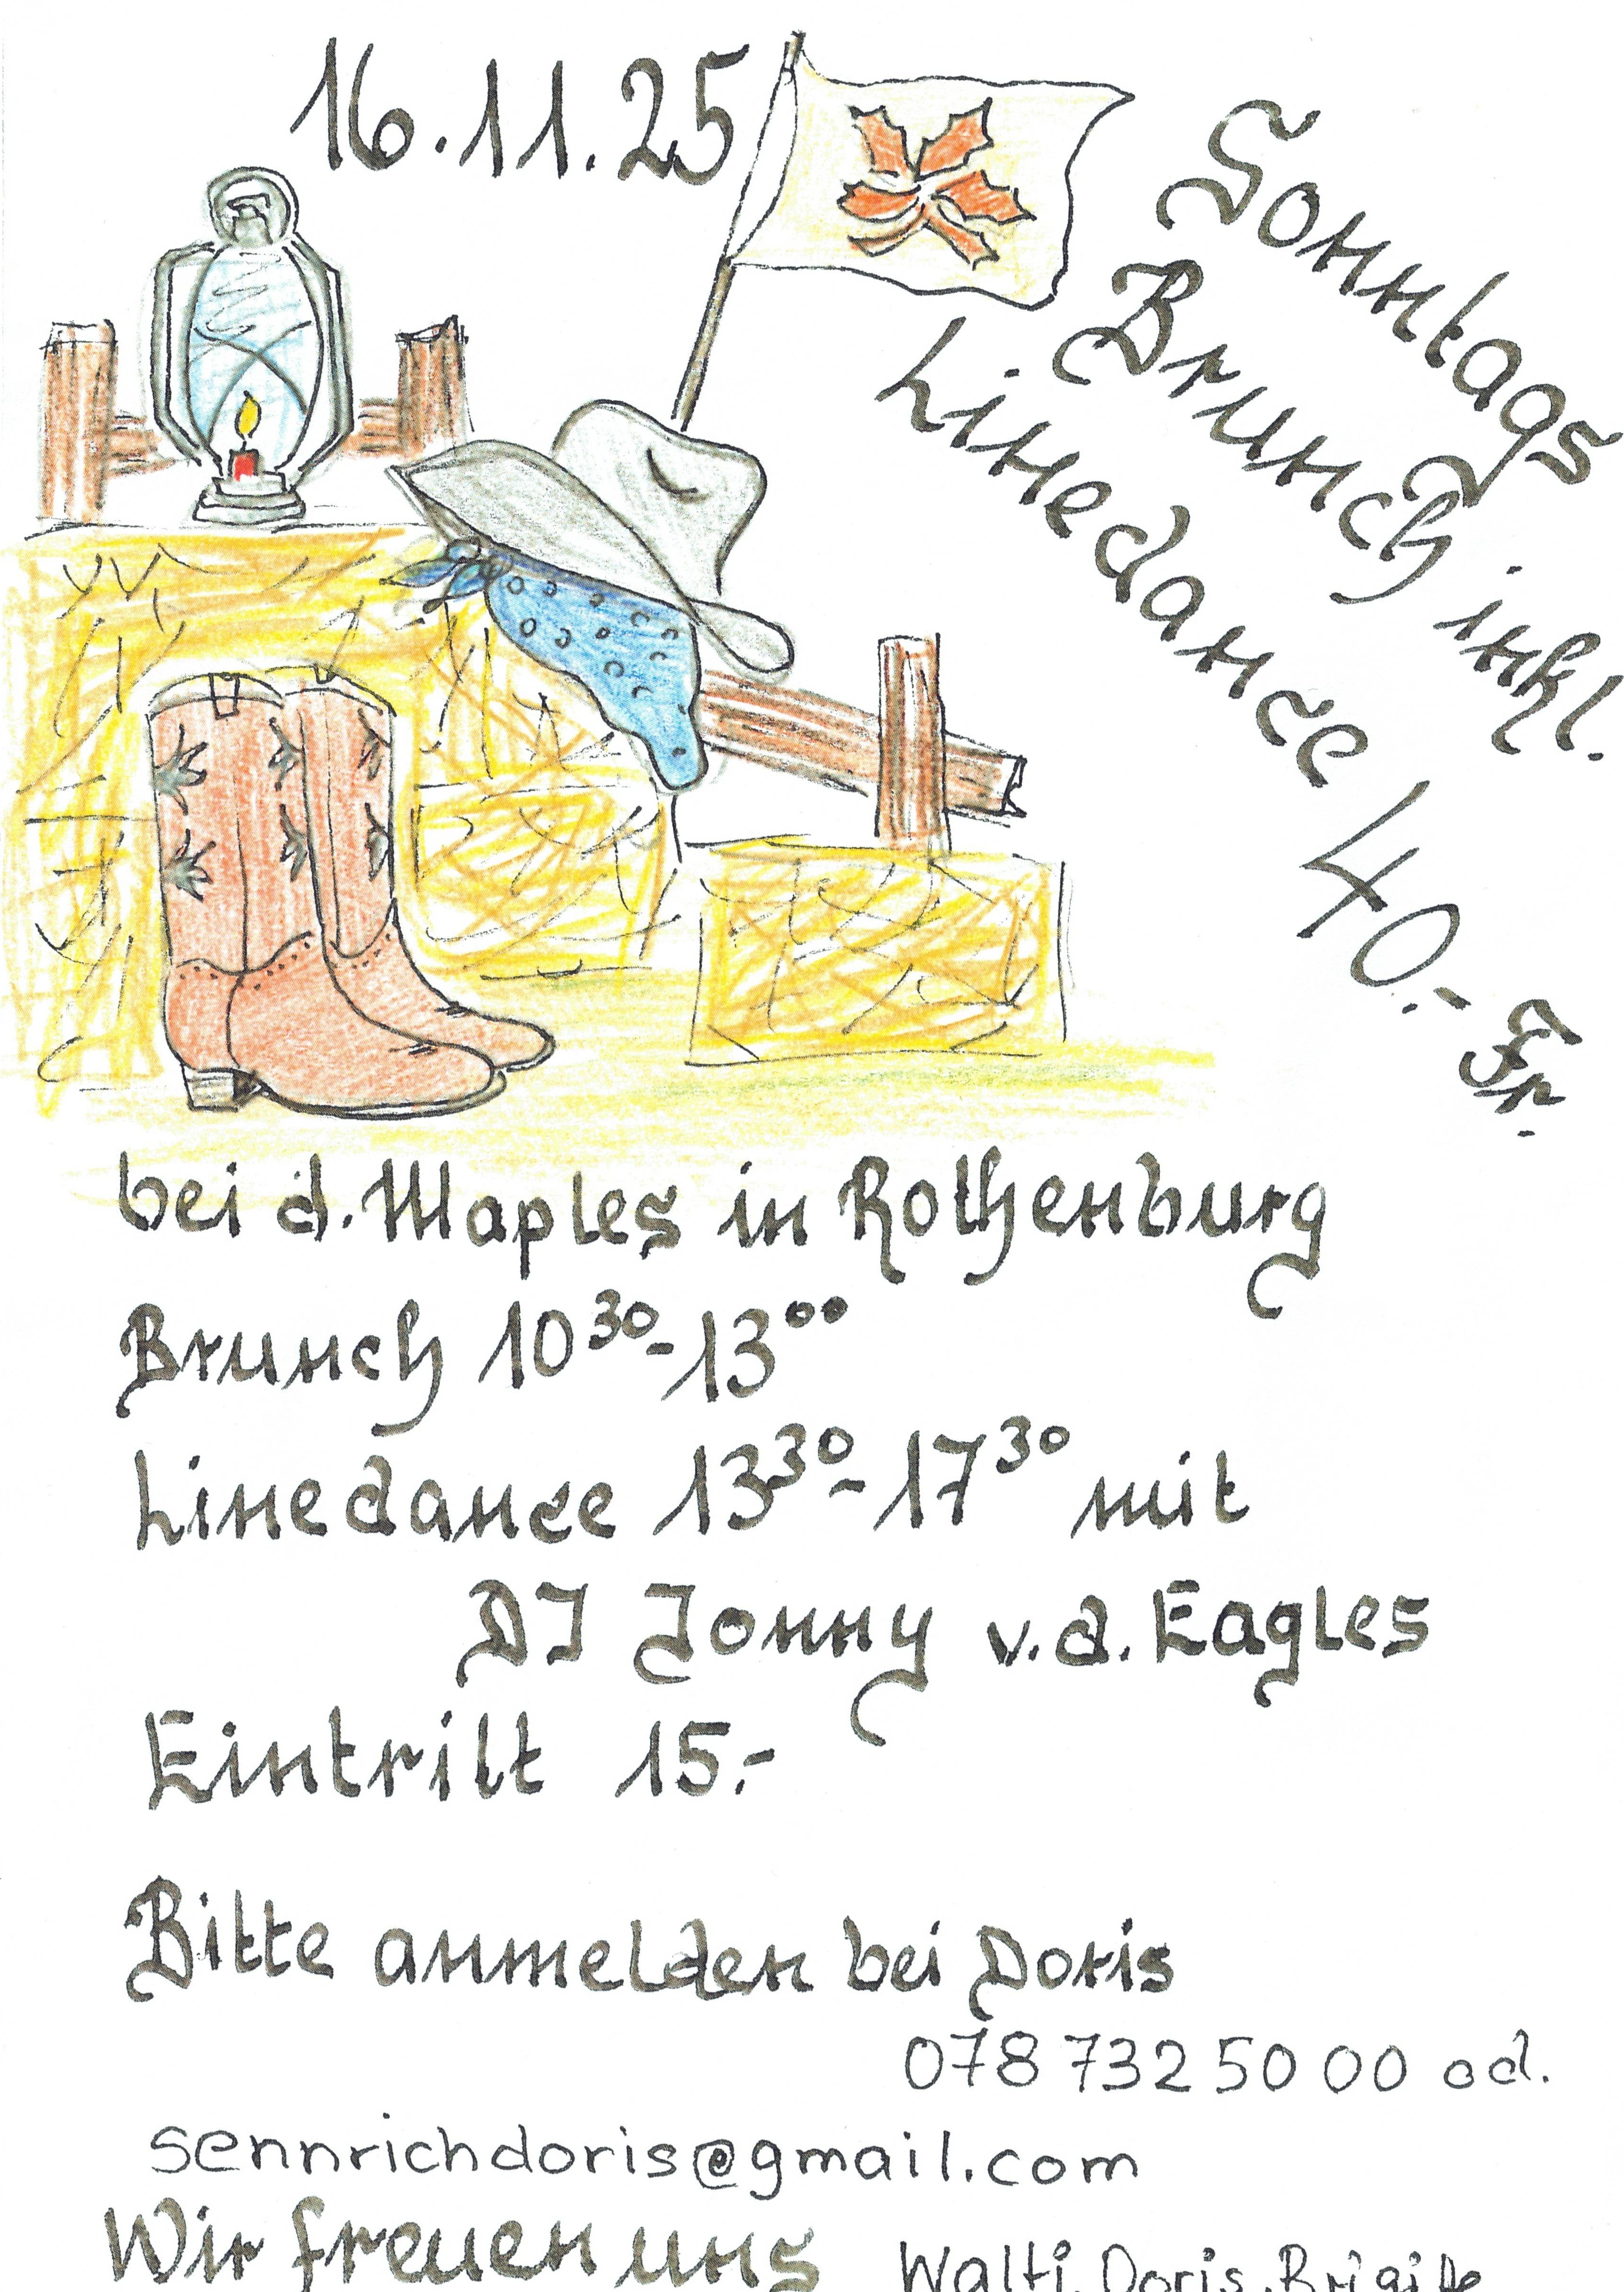 16.11.25
Sonntags
Brunch inkl.
Linedance 40.- Fr.
bei d. Maples in Rothenburg
Brunch 10³⁰-13⁰⁰
Linedance 13³⁰-17³⁰ mit
DJ Jonny v.d. Eagles
Eintritt 15.-
Bitte anmelden bei Doris
078 732 50 00 od.
sennrichdoris@gmail.com
Wir freuen uns Walti, Doris, Brigitte